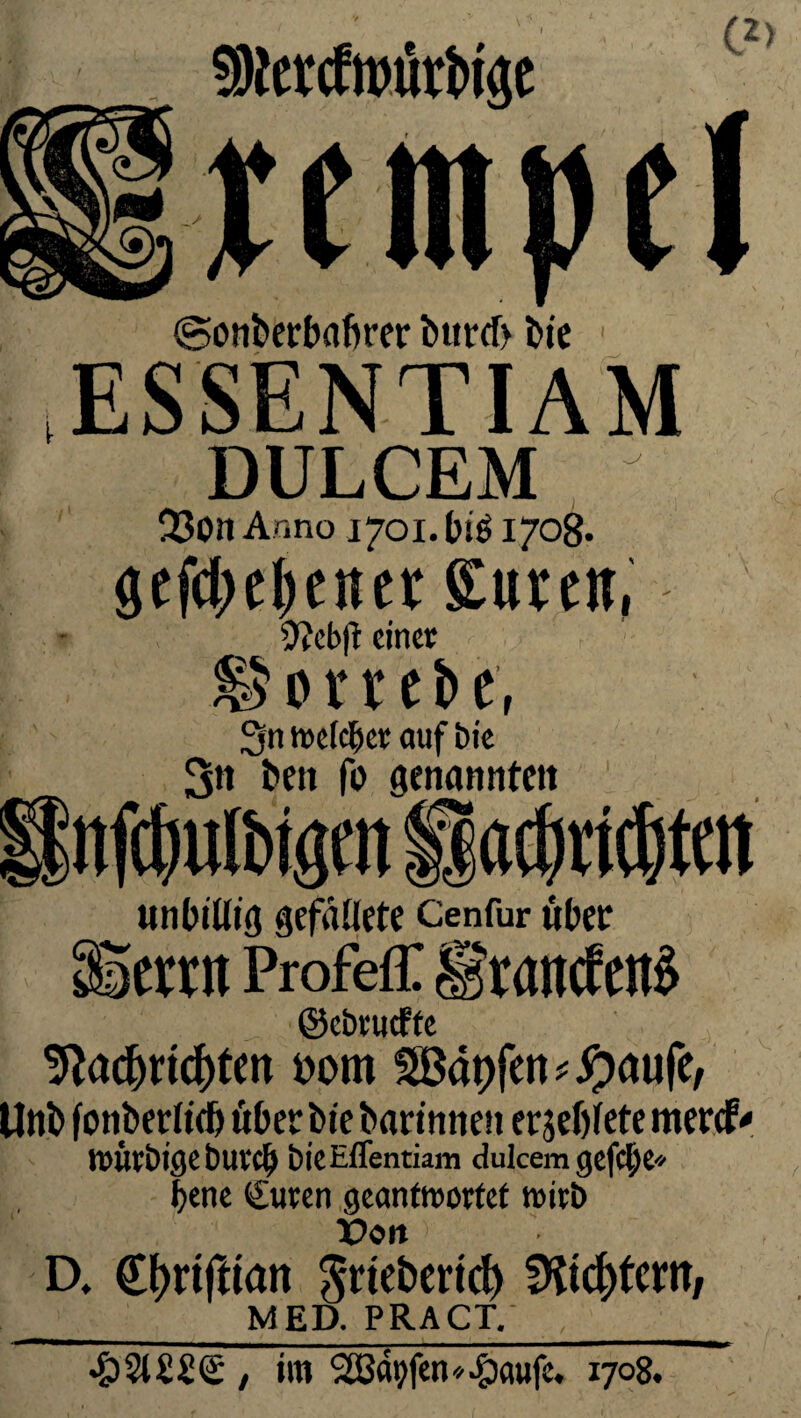 (2)
Merckwürdige
Exempel
Sonderbahrer durch die
ESSENTIAM
DULCEM
Von Anno 1701. biß 1708.
geschehener Curen,
Nebst einer
Vorrede,
In welcher auf die
In den so genannten
Unschuldigen Nachrichten
unbillig gefällete Censur über
Herrn Profess. Franckens
Gedruckte
Nachrichten vom Wäysen-Hause,
Und sonderlich über die darinnen erzehlete merck-
würdige durch die Essentiam dulcem gesche-
hene Curen geantwortet wird
Von
D. Christian Friederich Richtern,
MED. PRACT.
HALLE, im Wäysen-Hause. 1708.